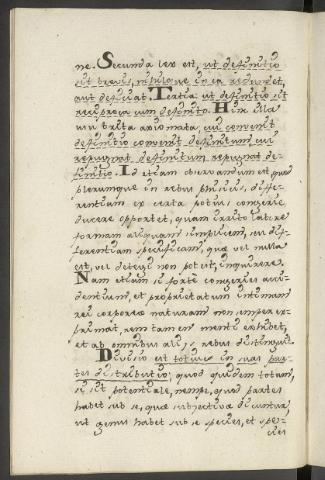 ne. Secunda lex est, ut definitio
sit brevis, nihilque in ea redundet,
aut deficiat. Tertia ut definitio sit
reciproca cum definito. Hinc illa
trita axiomata, cui convenit
definitio convenit definitum cui
repugnat definitum repugnat de-
finitio. Id etiam observandum est quod
plerumque in rebus physicis, diffe-
rentiam ex certa potius congerie
ducere opportet, quam irrito labore
formam aliquam simplicem, seu dif-
ferentiam specificam, quae vel nulla
est, vel detegi non potest, inquirere.
Nam etiam si forte congeries acci-
dentium, et proprietatum intimam
rei corporeae naturam non semper ex-
primat, rem tamen menti exhibet,
et ab omnibus aliis rebus distinguit.
Divisio est totius in suas par-
tes distributio; quod quidem totum,
si sit potentiale, nempe, quod partes
habet sub se, quae subjectivae dicuntur,
ut genus habet sub se species, et spe-
cies